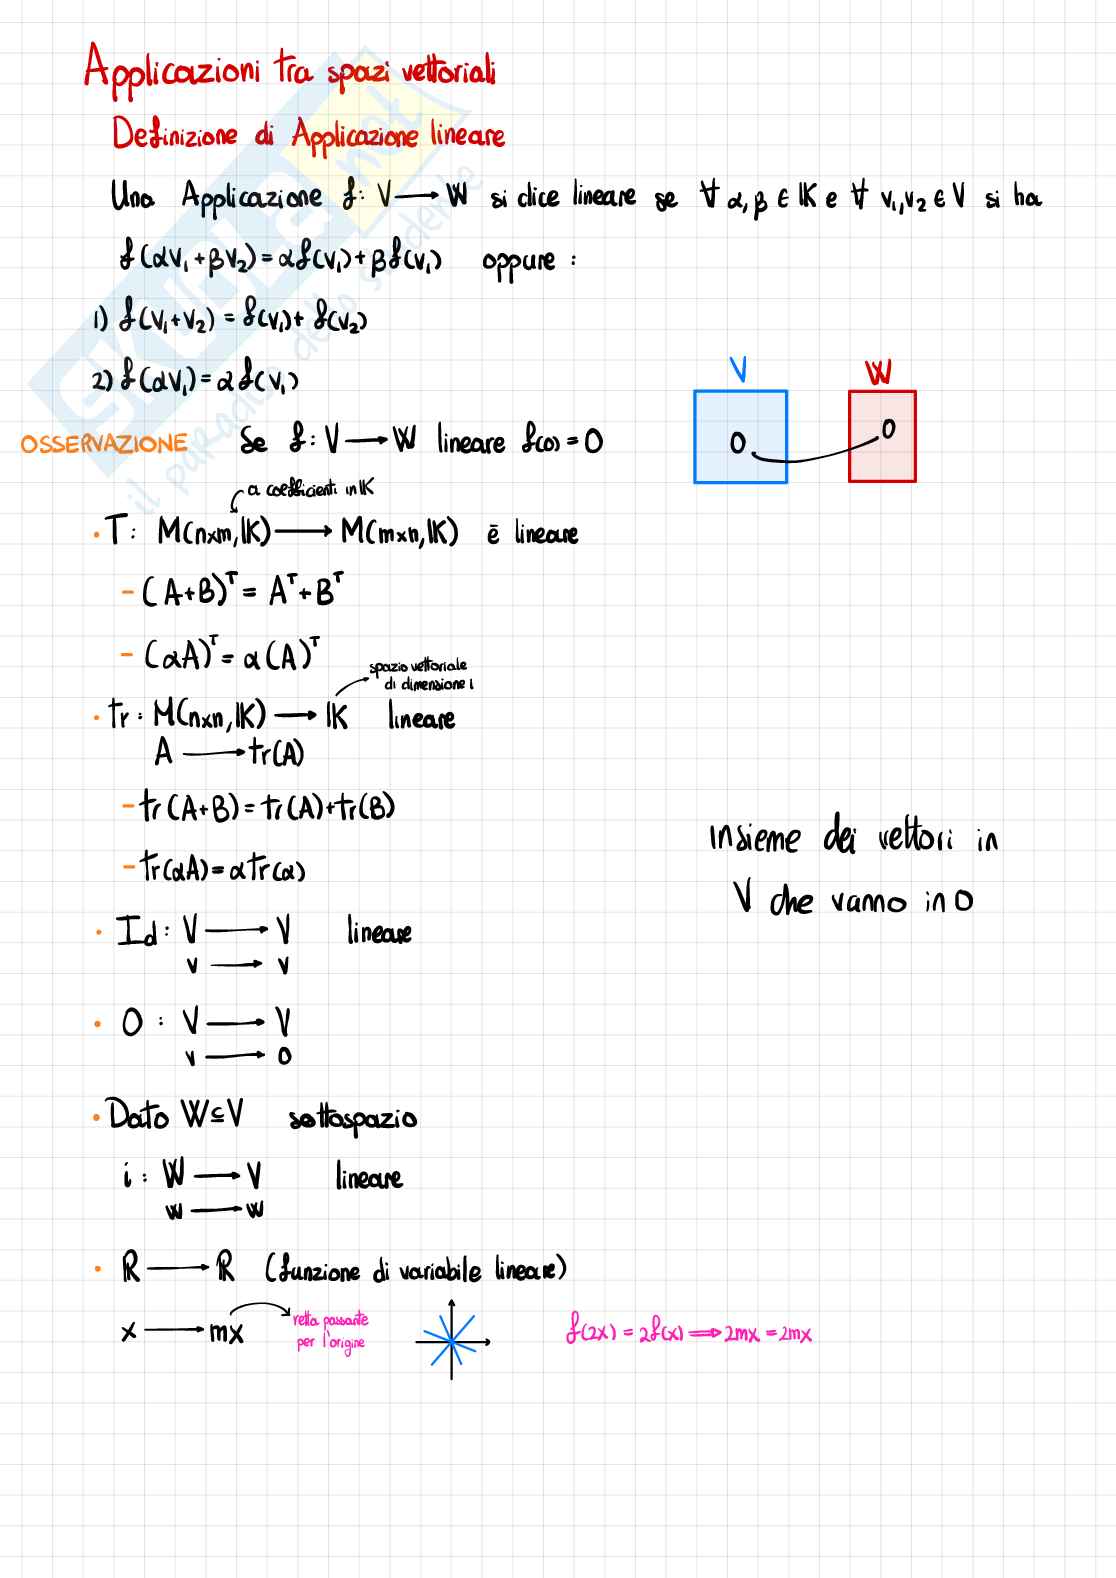 Applicazioni tra spazi vettoriali
Definizione di Applicazione lineare
Una Applicazione f: V → W si dice lineare se ∀ α, β ∈ IK e ∀ v₁, v₂ ∈ V si ha
f(αv₁ + βv₂) = αf(v₁) + βf(v₁) oppure :
1) f(v₁+v₂) = f(v₁) + f(v₂)
2) f(αv₁) = αf(v₁)
V W
OSSERVAZIONE Se f: V → W lineare f(0) = 0
0 0
a coefficienti in IK
• T: M(n×m, IK) → M(m×n, IK) ē lineare
- (A+B)ᵀ = Aᵀ + Bᵀ
- (αA)ᵀ = α(A)ᵀ
spazio vettoriale
di dimensione 1
• tr: M(n×n, IK) → IK lineare
A → tr(A)
- tr(A+B) = tr(A)+tr(B)
- tr(αA) = αtr(α)
insieme dei vettori in
V che vanno in 0
• Id: V → V lineare
v → v
• O : V → V
v → 0
• Dato W ⊆ V sottospazio
i : W → V lineare
w → w
• R → R (funzione di variabile lineare)
x → mx
retta passante
per l'origine
f(2x) = 2f(x) ⟹ 2mx = 2mx
SKUOLA.not
il paradiso dello studente